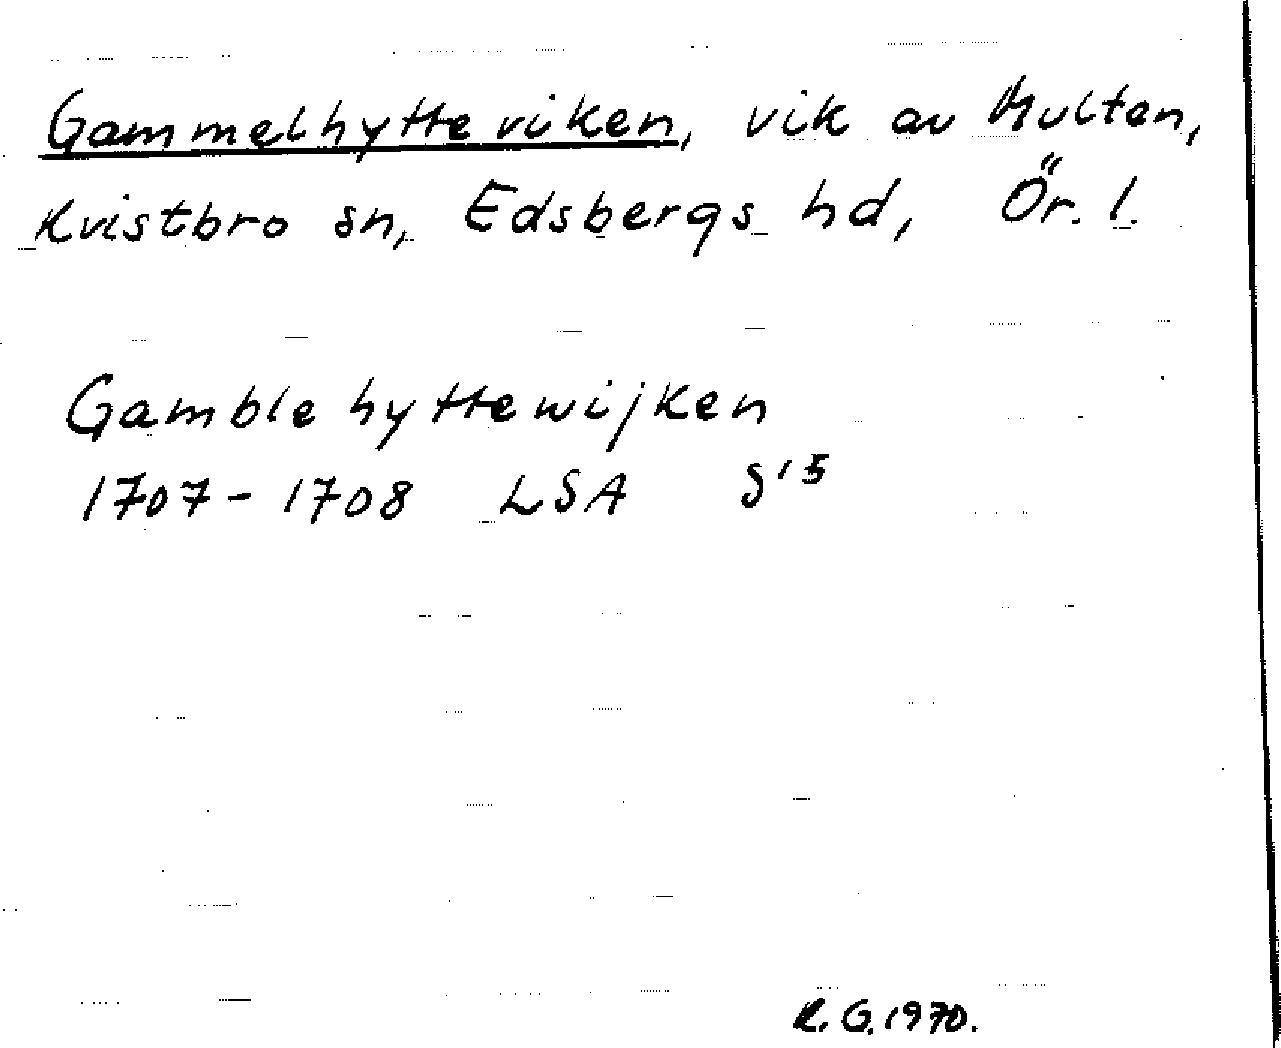 Gammelhytteviken, vik av Multen,
Kvistbro sn, Edsbergs hd, Ör. l.
Gamble hyttewijken
1707-1708 LSA S 15
R. G. 1970.